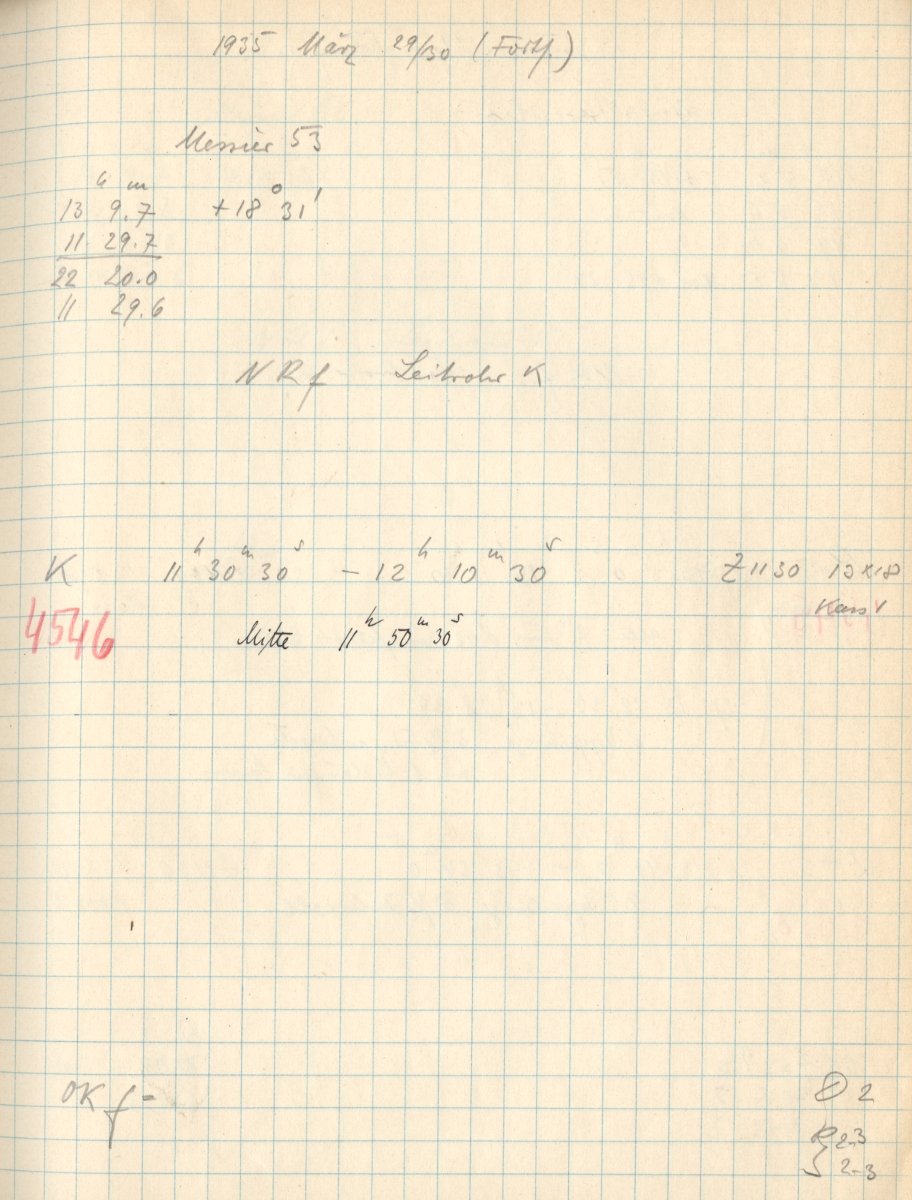 1935 März 29/30 (Fortf.)
Messier 53
13h 9.7m +18° 31'
11 29.7
22 20.0
11 29.6
NRf Leitrohr K
K 11h 30m 30s - 12h 10m 30s Z 1130 12x18
Kass 1
4546 Mitte 11h 50m 30s
OK f =
2
2-3
2-3